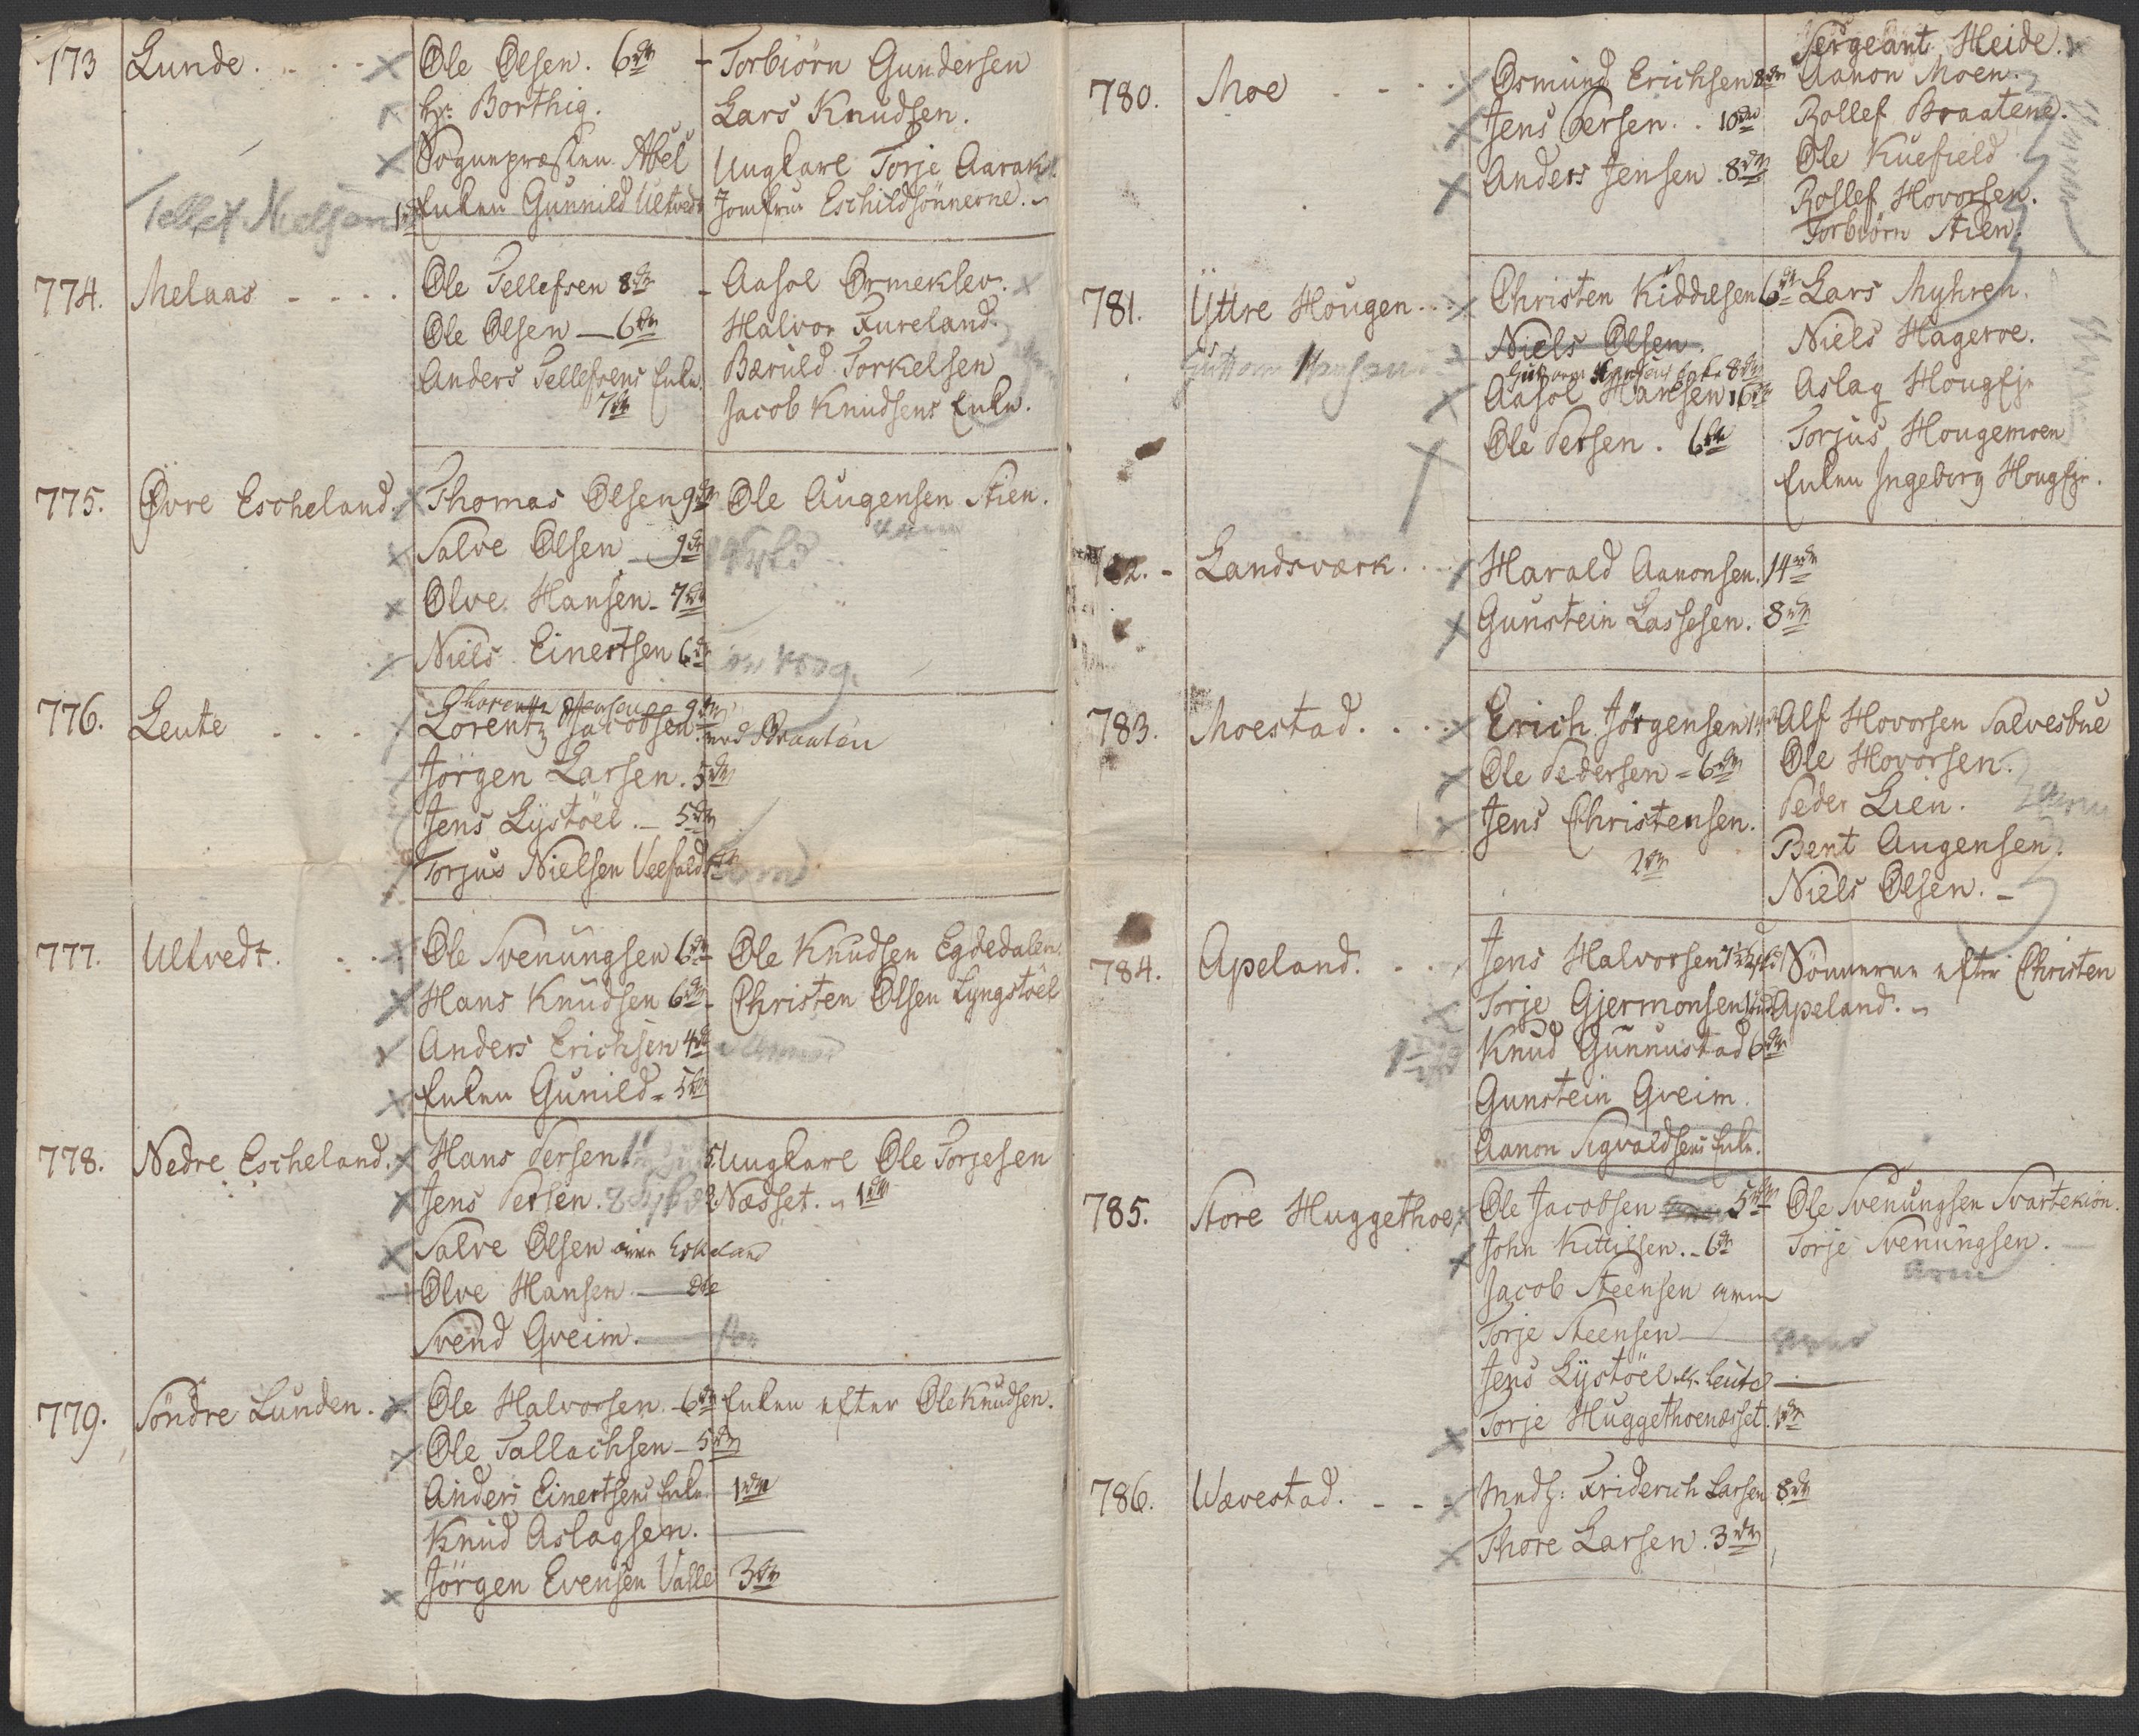 173 Lunde. Ole Olsen. 6 rdr Torbiörn Gundersen
Hr: Borthig. Lars Knudsen.
Sognepræsten Abel Ungkarl Torje Aarak
Tellef Nielsen Enken Gunnild Ulltvedt Jomfrue Eschildsönnerne.
774. Melaas Ole Tellefsen 8 rdr Aasol Ormeklev.
Ole Olsen 6 rdr Halvor Fureland.
Anders Tellefsens Enke. Bæruld Torkelsen
7 rdr Jacob Knudsens Enke.
775. Øvre Escheland. Thomas Olsen 9 rdr Ole Augensen Stien.
Salve Olsen 9 rdr
Olve Hansen 7 rdr
Niels Einertsen 6 rdr
776. Leute Lorentz Jacobsen
Jörgen Larsen. 5 rdr
Jens Lÿstöel. 5 rdr
Torjus Nielsen Veefald
777. Ulltvedt. Ole Svenungsen 6 rdr Ole Knudsen Egdedalen
Hans Knudsen 6 rdr Christen Olsen Lyngstöel
Anders Erichsen 4 rdr
Enken Gunild 5 rdr
778. Nedre Escheland. Hans Persen Ungkarl Ole Torjesen
Jens Persen. Næsset. 1 rdr
Salve Olsen Eskeland
Olve Hansen
Svend Gveim.
779. Söndre Lunden. Ole Halvorsen 6 rdr Enken efter Ole Knudsen.
Ole Tallachsen 5 rdr
Anders Einertsens Enke 1 rdr
Knud Aslagsen.
Jörgen Evensen Valle 3 rdr
Sergeant Heide.
780. Moe Osmund Erichsen 8 rdr Aanon Moen.
Jens Persen 10 rdr Rollef Braatene.
Anders Jensen 8 rdr Ole Kuefield
Rollef Hovorsen.
Torbiörn Stien.
781. Ÿttre Hougen Christen Kiddilsen 6 rdr Lars Myhren.
Guttorm Hansen Niels Olsen. Niels Hageroe.
Aasol Hansen 16 rdr Aslag Hougejr
Ole Persen. 6 rdr Torjus Hougemoen
Enken Ingeborg Hougejr.
782. Landsværk. Harald Aanonsen. 14 rdr
Gunstein Lassesen. 8 rdr
783. Moestad. Erich Jörgensen Alf Hovorsen Salvesbue
Ole Pedersen 6 rdr Ole Hovorsen.
Jens Christensen. Peder Lien. arm
2 rdr Bent Augensen.
Niels Olsen.
784. Apeland. Jens Halvorsen Sönnerne efter Christen
Torje Gjermonsen Apeland.
Knud Gunnustad 6 rdr
Gunstein Gveim.
Aanon Sigvaldsens Enke.
785. Store Huggethoe Ole Jacobsen 5 rdr Ole Svenungsen Svartekiön.
John Kittilsen. 6 rdr Torje Svenungsen.
Jacob Steensen arm arm
Torje Steensen arm
Jens Lÿstöel Leute
Torje Huggethoenæsset. 1 rdr
786. Wævestad. Mndt: Friderich Larsen 8 rdr
Thore Larsen. 3 rdr